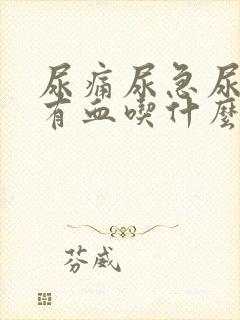 尿痛尿急尿
有血喫什麼
芬威